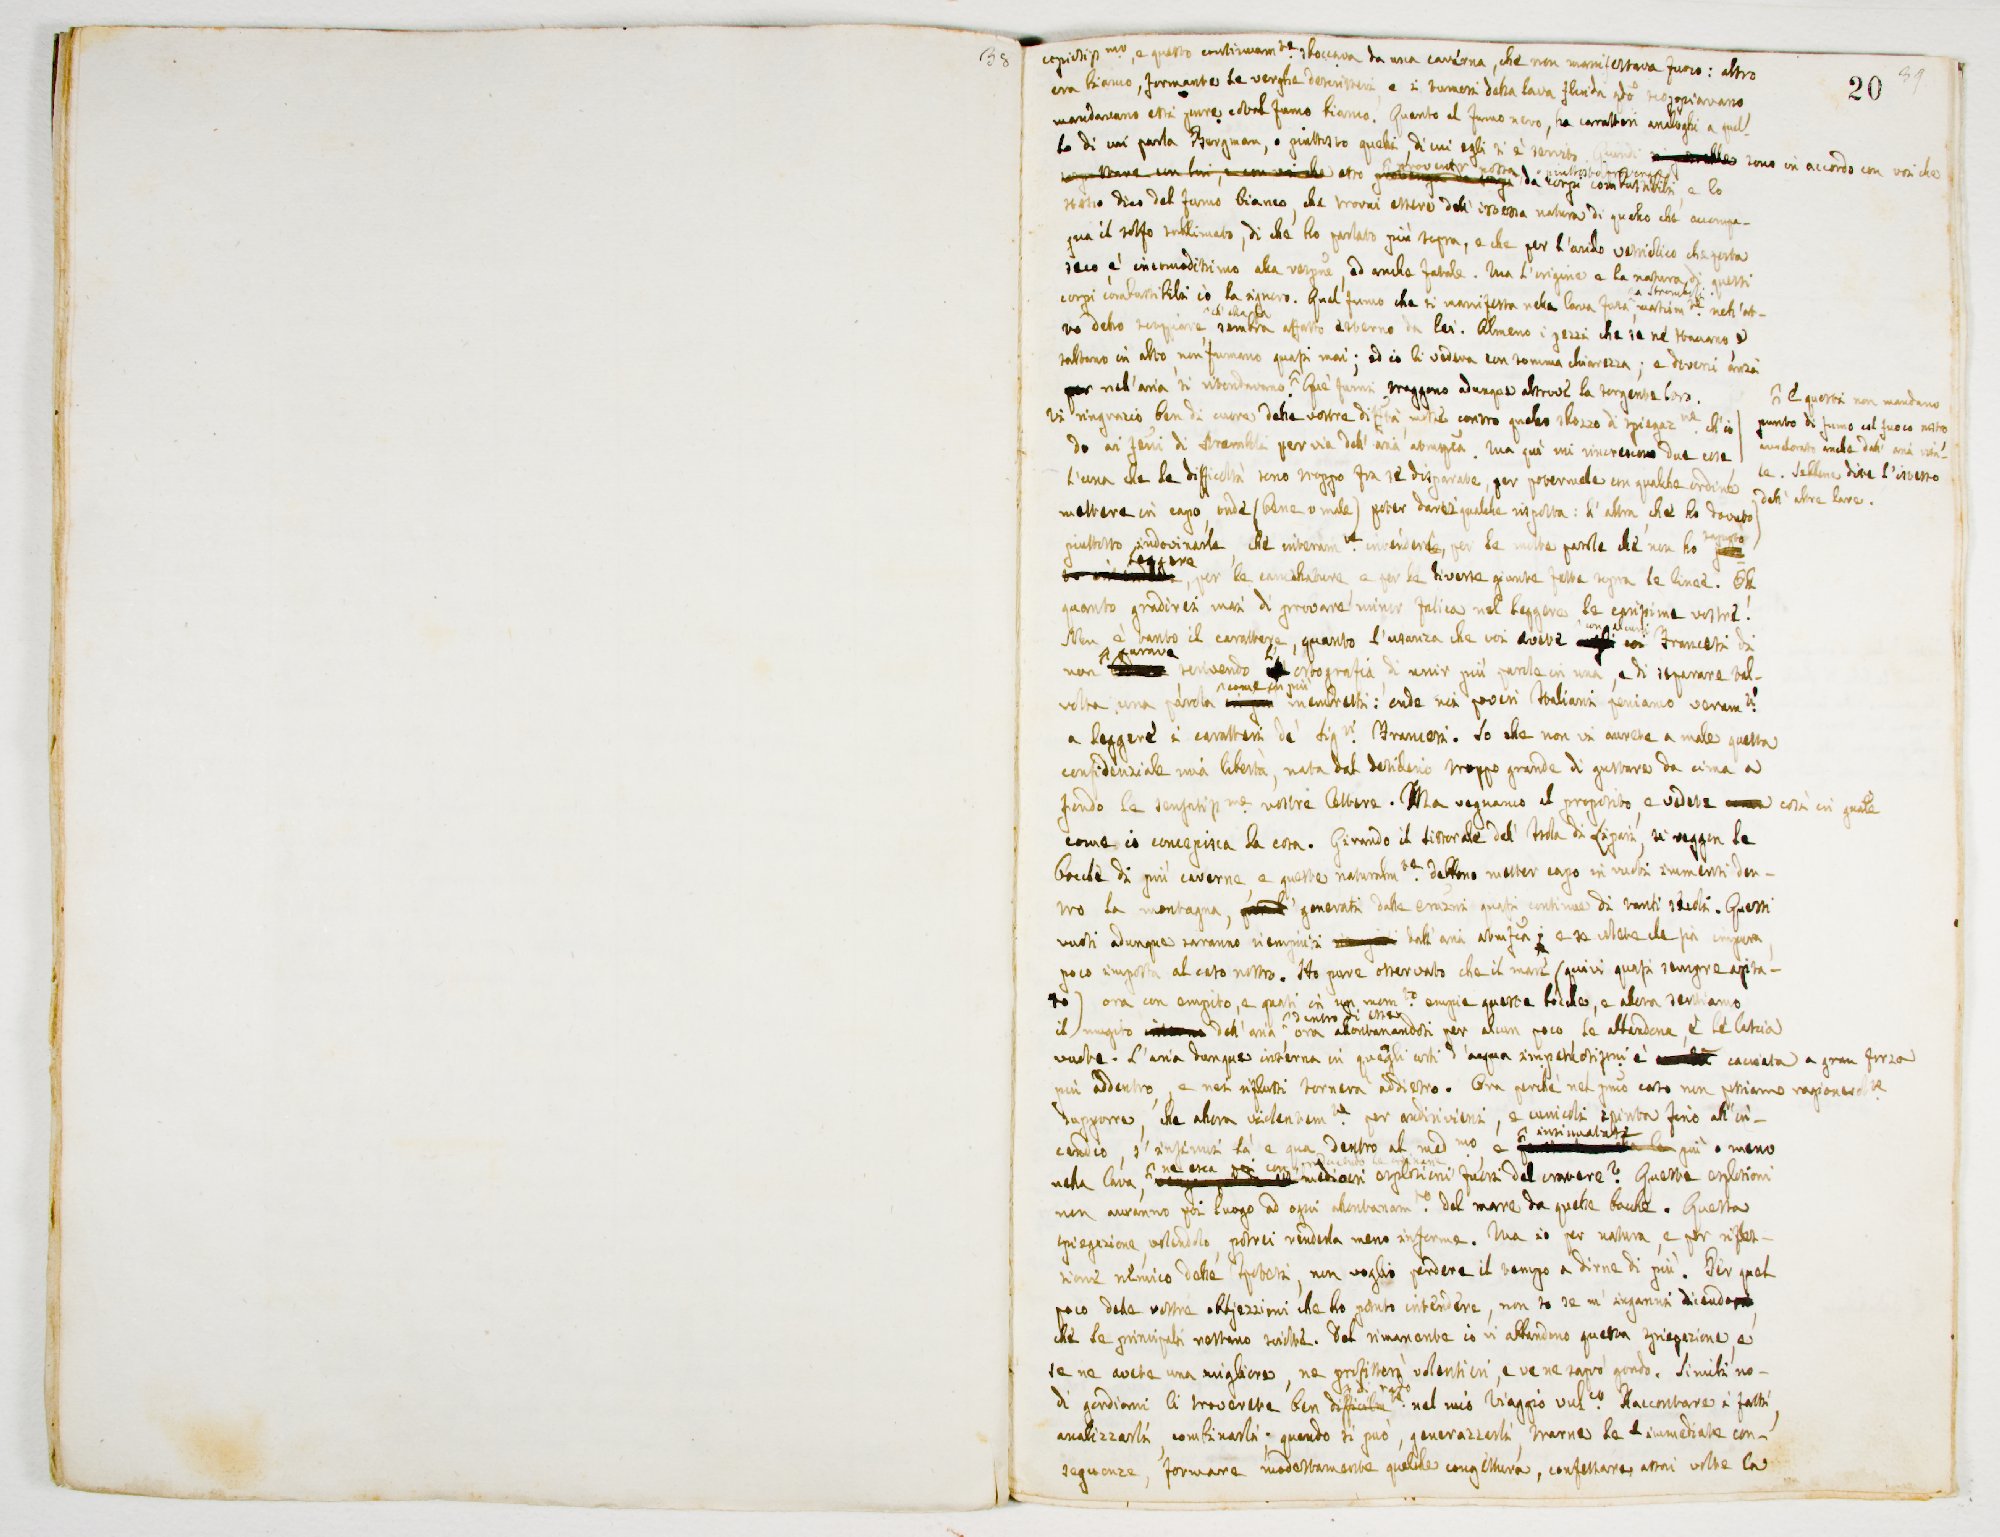 38
20
39
copiosiss.mo, e questo continuam.te sboccava da una caverna, che non manifestava fuoco: altro
era bianco, formante le verghe descrittevi e i tumori della lava fluida qdo scoppiavano
mandavano essi pure copal fumo bianco. Quanto al fumo nero, ha caratteri analoghi a quel-
lo di cui parla Bergman, o piuttosto quelli, di cui egli si è servito. Quindi sono in accordo con voi che
esso provenir possa, o piuttosto provenga da corpi combustibili, e lo
stesso dico del fumo bianco, che trovai essere dell'istessa natura di quello che accompa-
gna il solfo sublimato, di che ho parlato più sopra, e che per l'acido vetriolico che porta
seco è incomodissimo alla respne, ed anche fatale. Ma l'origine e la natura di questi
corpi combustibili io la ignoro. Quel fumo che si manifesta nella lava fusa a Stromboli, massim.te nell'at-
to dello scoppiare ch'ella fa sembra affatto esterno da lei. Almeno i pezzi che se ne staccano e
saltano in alto non fumano quasi mai; ed io li vedeva con somma chiarezza; e diversi anzi
nell'aria si rifondavano. Que' fumi traggono adunque altrove la sorgente loro.
E questi non mandano
punto di fumo col fuoco nostro
avvalorato anche dall'aria vita-
le. Sebbene dite l'istesso
dell'altre lave.
Vi ringrazio ben di cuore delle vostre diffità mosse contro quello sbozzo di spiegaz.ne ch'io
do ai feni di Stromboli per via dell'aria atmosfca. Ma qui mi rincrescono due cose
L'una che le difficoltà sono troppo fra sè disparate, per potermele con qualche ordine
mettere in capo, onde (bene o male) poter darvi qualche risposta: l'altra che ho dovuto
piuttosto indovinarle, che interam.te intenderle, per le molte parole che non ho saputo
leggere, per le cancellature e per le diverse giunte fatte sopra le linee. Oh
quanto gradirei mai di provare minor fatica nel leggere le cariss.me vostre!
Non è tanto il carattere, quanto l'usanza che voi avete con alcuni Francesi di
non curare scrivendo l'ortografia, di unir più parole in una, e di separare tal-
volta una parola come in più membretti: onde noi poveri Italiani peniamo veram.te
a leggere i caratteri de' Sig.ri Francesi. So che non vi aurete a male questa
confidenziale mia libertà, nata dal desiderio troppo grande di gustare da cima a
fondo le sensatiss.me vostre lettere. Ma vegnamo al proposito, e vedete così in quale
come io concepisca la cosa. Girando il littorale del' Isola di Lipari, si veggon le
bocche di più caverne, e queste naturalm.te debbono metter capo in vuoti immensi den-
tro la montagna, generati dalle eruzni quasi continue di tanti secoli. Questi
vuoti adunque saranno riempiuti dall'aria atmosfca; e se volete che sia impura,
poco importa al caso nostro. Ho pure osservato che il mare (quivi quasi sempre agita-
to) ora con empito, e quasi in un mom.to empie queste bocche, e allora sentiamo
il mugito dell'aria dentro di esse, ora allontanandosi per alcun poco le abbandona, e le lascia
vuote. L'aria dunque interna in quegli urti d'acqua impetuosissimi è cacciata a gran forza
più addentro, e nei riflussi tornerà addietro. Ora perchè nel pmo caso non possiamo ragionevol.te
supporre, che allora violentem.te per andirivieni, e cunicoli spinta fino all'in-
cendio, s'insinui là e qua dentro al med.mo, e insinuatasi più o meno
nella lava, ne esca poi con mediocri esplosioni fuori del cratere? Queste esplosioni
non auranno poi luogo ad ogni allontanam.to del mare da quelle bocche. Questa
spiegazione, volendolo, potrei renderla meno informe. Ma io per natura, e per rifles-
sione nemico delle Ipotesi, non voglio perdere il tempo a dirne di più. Per quel
poco delle vostre obbjezzioni che ho potuto intendere, non so se m'inganni dicendo
che le principali restano sciolte. Del rimanente io vi abbandono questa spiegazione, e
se ne avete una migliore, ne profitterò volentieri, e ve ne saprò grado. Simili no-
di gordiani li troverete ben di rado nel mio Viaggio vul.co. Raccontare i fatti,
analizzarli, combinarli, quando si può, generalizzarli, trarne le immediate con-
seguenze, formare modestamente qualche congettura, confessare assai volte la